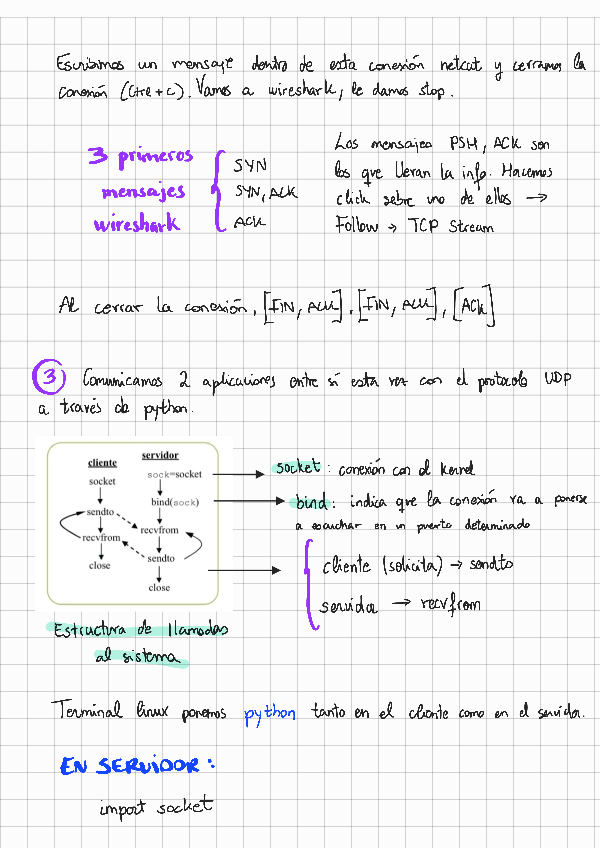 Escribimos un mensaje dentro de esta conexión netcat y cerramos la
conexión (Ctrl + C). Vamos a wireshark, le damos stop.
3 primeros
mensajes
wireshark
SYN
SYN, ACK
ACK
Los mensajes PSH, ACK son
los que llevan la info. Hacemos
click sobre uno de ellos →
Follow → TCP Stream
Al cerrar la conexión, [FIN, ACK], [FIN, ACK], [ACK]
3 Comunicamos 2 aplicaciones entre sí esta vez con el protocolo UDP
a través de python.
cliente
socket
sendto
recvfrom
close
servidor
sock=socket
bind(sock)
recvfrom
sendto
close
socket: conexión con el kernel
bind: indica que la conexión va a ponerse
a escuchar en un puerto determinado
cliente (solicita) → sendto
servidor → recvfrom
Estructura de llamadas
al sistema
Terminal linux ponemos python tanto en el cliente como en el servidor.
EN SERVIDOR:
import socket